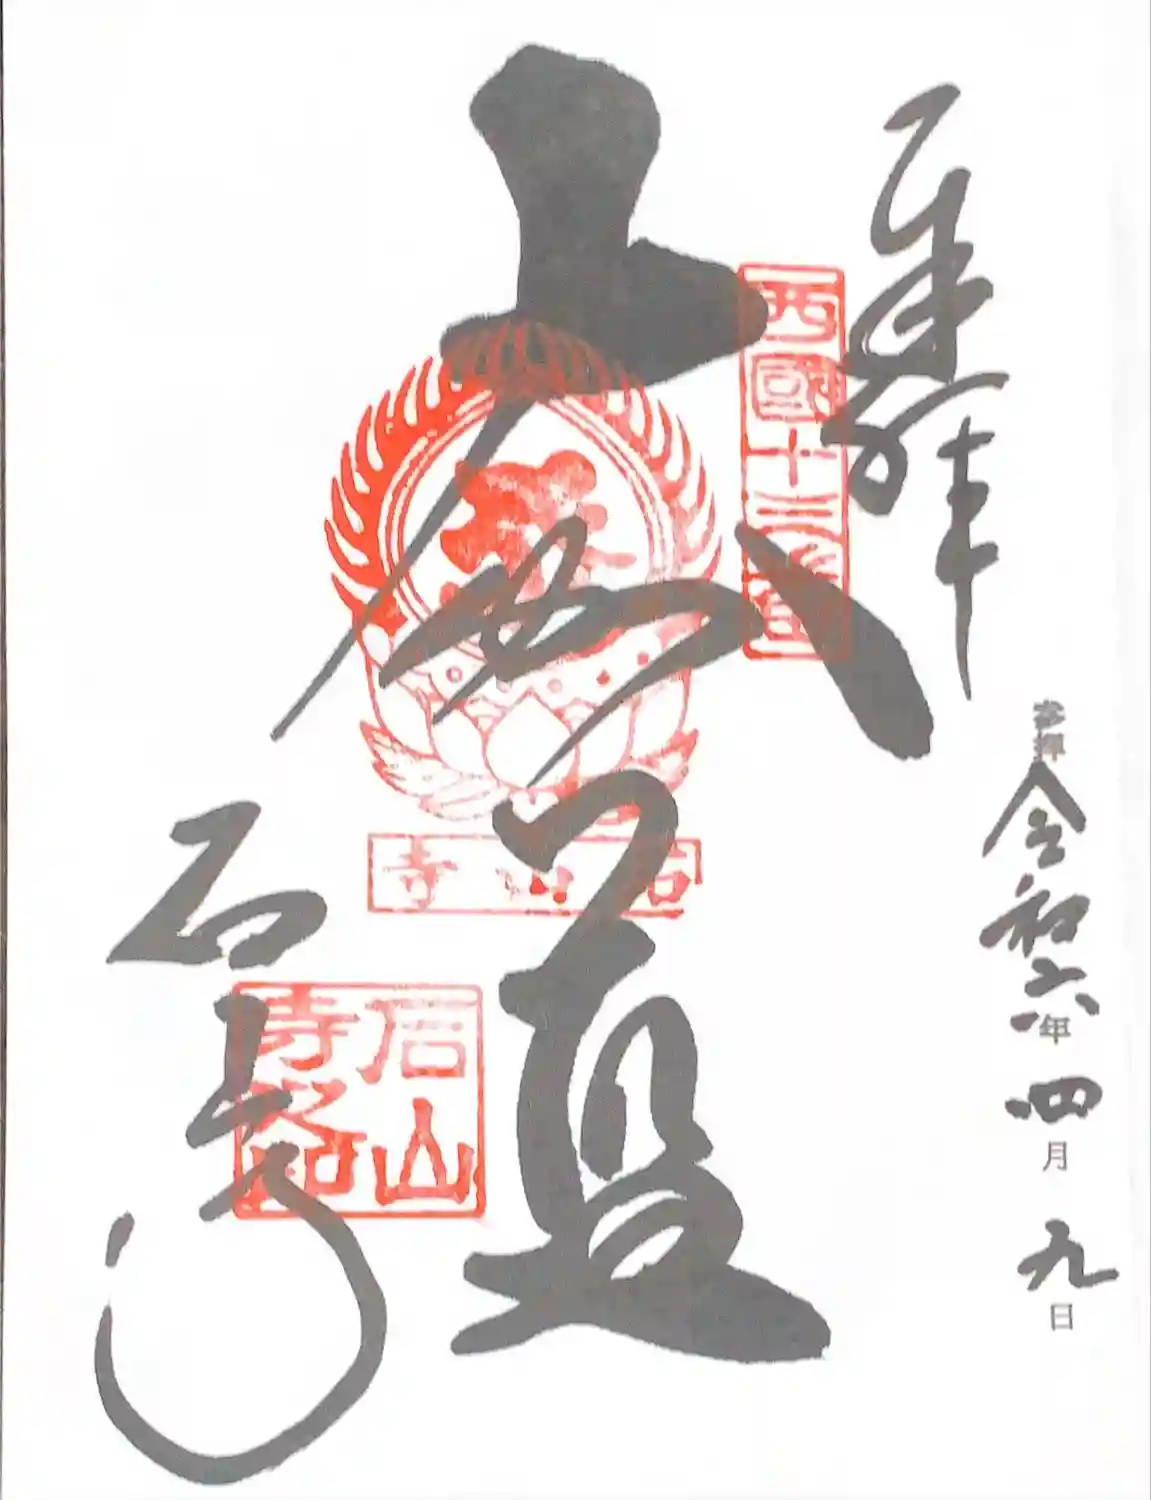 奉拝
西國十三番
参拝 令和六年四月九日
大伽藍
石山寺
石山寺
石山寺之印